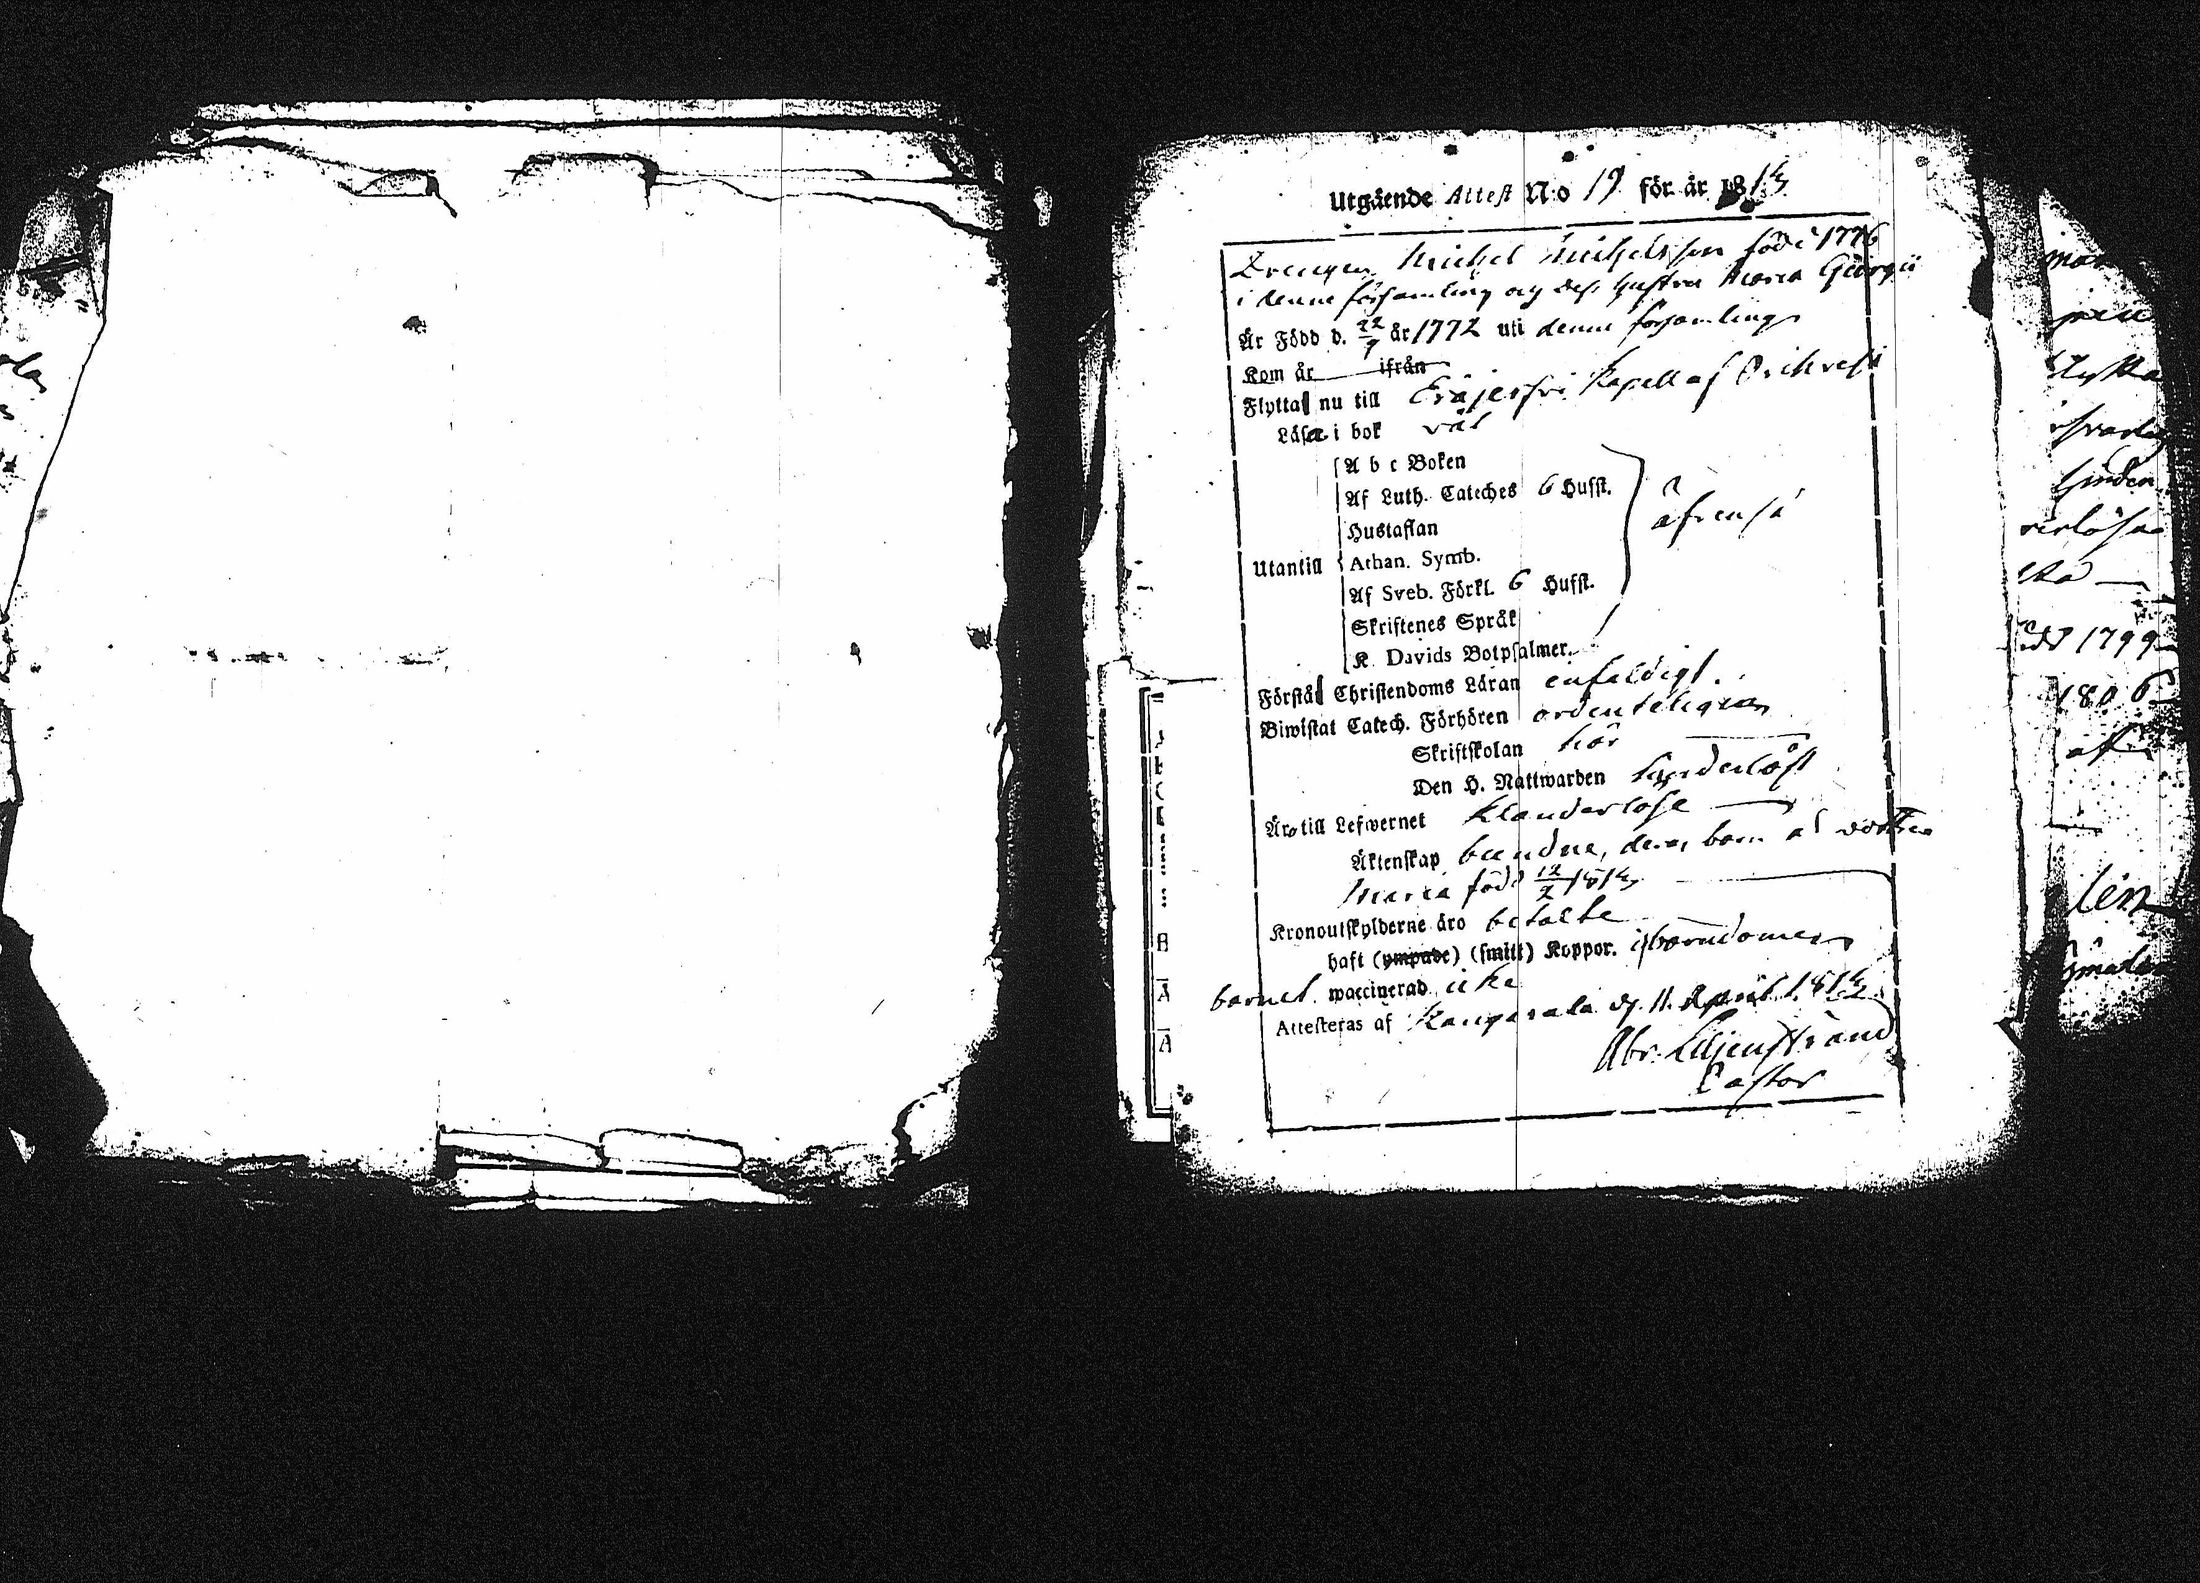 Utgående Attest N:o 19 för år 1814
Drengen Michel Michelsson född 1776
i denna församling och dess hustru Maria Georgii
Är Född d. 22/9 år 1772 uti denna församling
Kom år ifrån
Flytta nu till Eräjerfvi Kapell af Orihvesi
Läsa i bok väl
A b c Boken
Af Luth. Cateches 6 Hufst.
Hustaflan
äfven så
Utantill Athan. Symb.
Af Sveb. Förkl. 6 Hufst.
Skriftenes Språk
K. Davids Botpsalmer.
Förstå Christendoms Läran enfaldigt.
Biwistat Catech. Förhören ordenteligen
Skriftskolan hör
Den H. Nattwarden hinderlöst
Äro till Lefwernet klanderlöse
Äktenskap bundne, deras barn af
Maria född 12/2 1814
Kronoutskylderne äro betalte
haft (ympade) (smitt) Koppor. i barndomen
barnet waccinerad icke
Attesteras af Kangasala d. 11. April 1814
Abr. Liljenstrand
Pastor
flytta
hinder
1799
1806
B
A
A